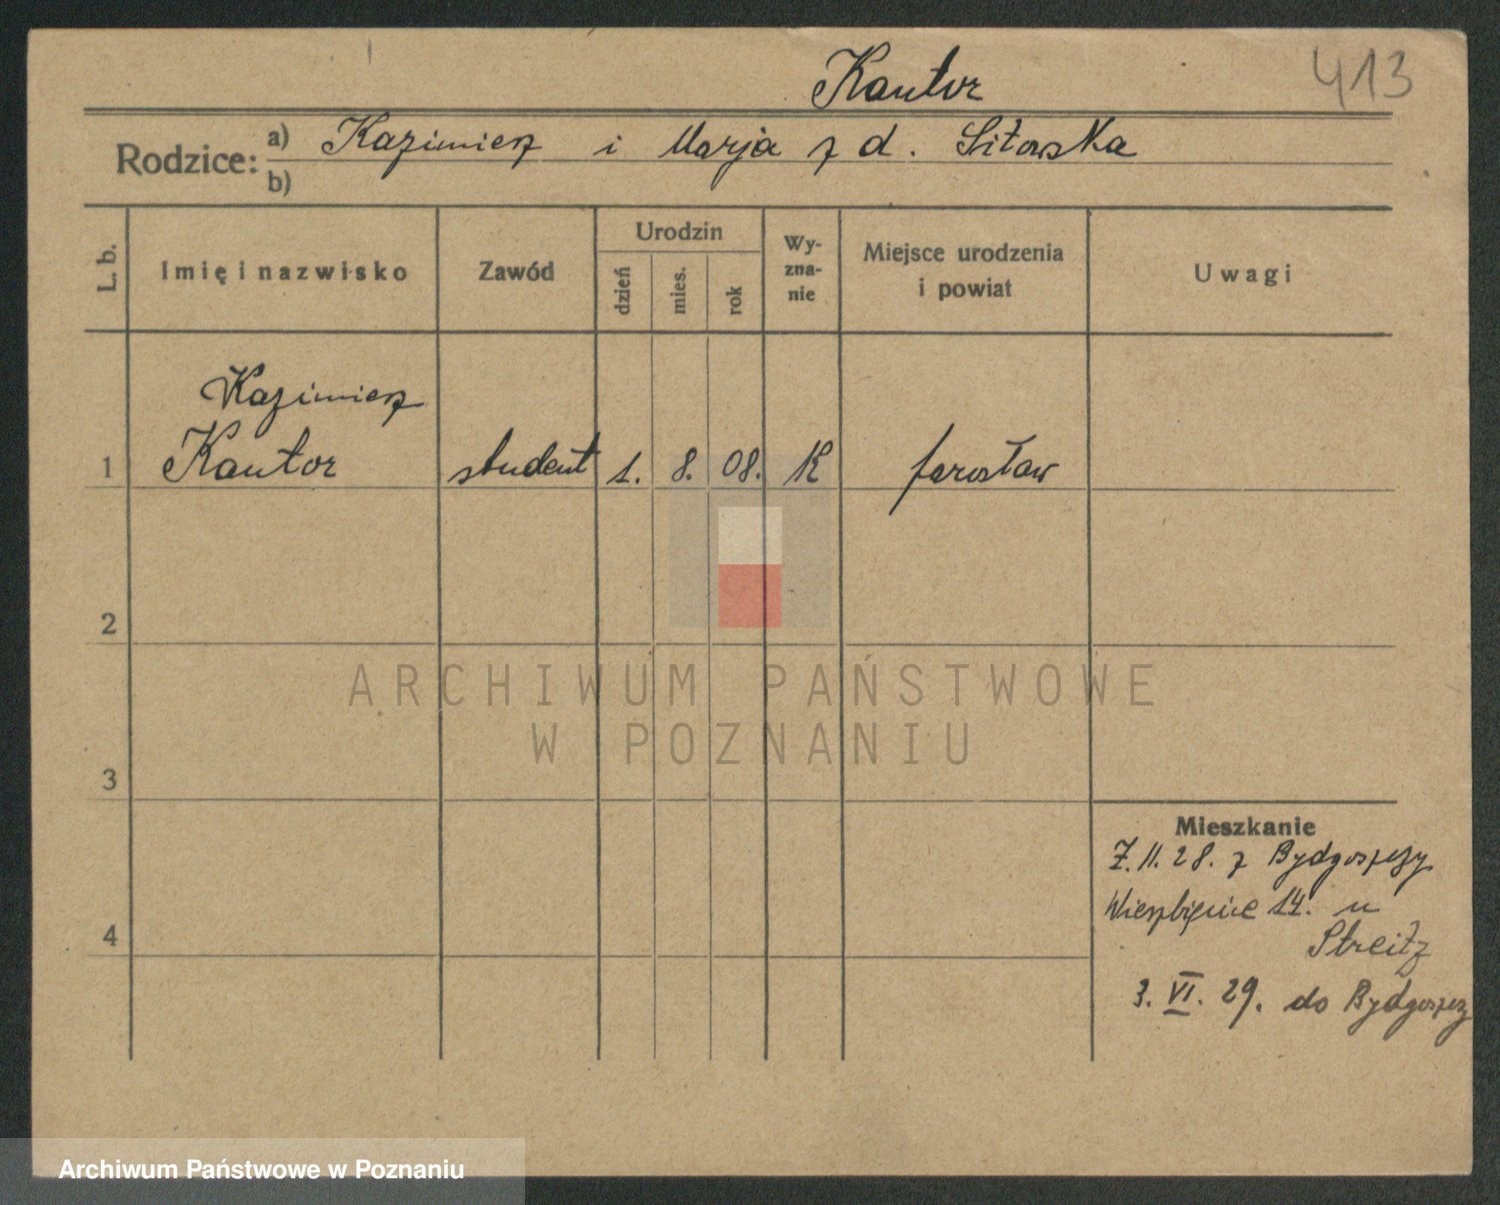 Kantor
413
Rodzice: a) Kazimierz i Marja z d. Sitowska
b)
L. b.
Imię i nazwisko
Zawód
Urodzin
dzień
mies.
rok
Wy-
zna-
nie
Miejsce urodzenia
i powiat
Uwagi
Kazimierz
1 Kantor student 1. 8. 08. K Jarosław
2
ARCHIWUM PAŃSTWOWE
W POZNANIU
3
Mieszkanie
7. 11. 28. z Bydgoszczy
4
Wierzbięcice 14. u
Streitz
3. VI. 29. do Bydgoszcz
Archiwum Państwowe w Poznaniu